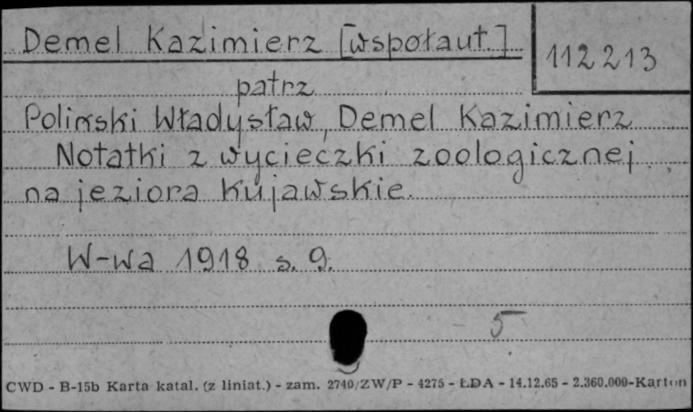 Demel Kazimierz [współaut.]
112213
patrz
Poliński Władysław, Demel Kazimierz
Notatki z wycieczki zoologicznej
na jeziora Kujawskie.
W-wa 1918 s. 9.
5
CWD - B-15b Karta katal. (z liniat.) - zam. 2740/ZW/P - 4275 - ŁDA - 14.12.65 - 2.360.000-Karton